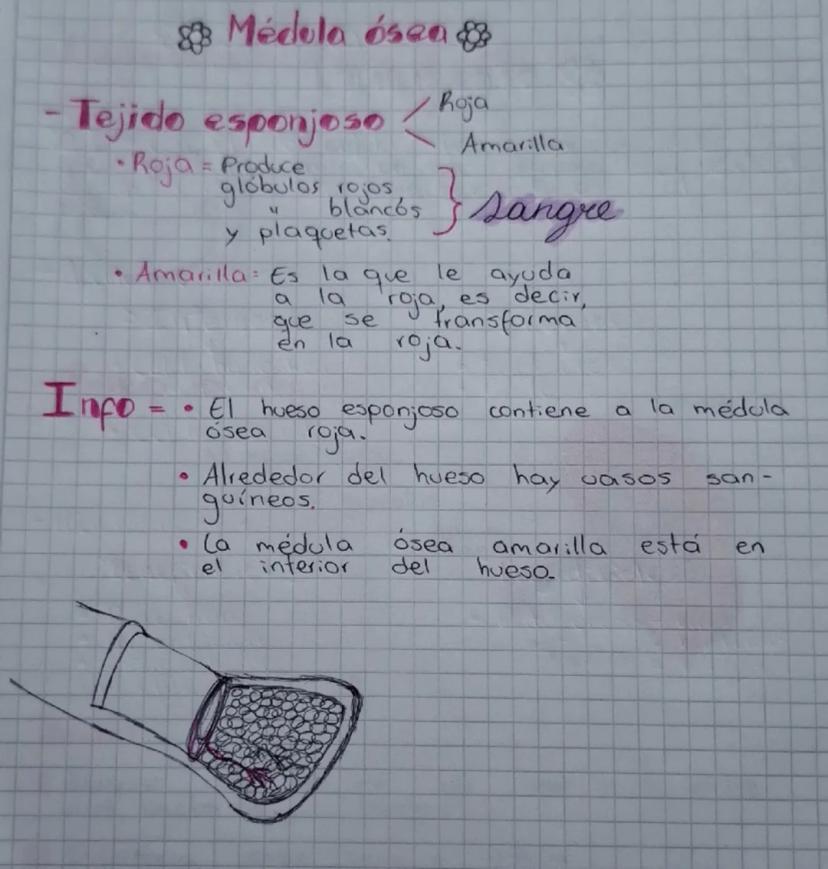 Médula ósea
- Tejido esponjoso < Roja
Amarilla
• Roja = Produce
glóbulos rojos
" blancos
y plaquetas.
} sangre
• Amarilla = Es la que le ayuda
a la roja, es decir,
que se transforma
en la roja.
Info = • El hueso esponjoso contiene a la médula
ósea roja.
• Alrededor del hueso hay vasos san-
guíneos.
• La médula ósea amarilla está en
el interior del hueso.